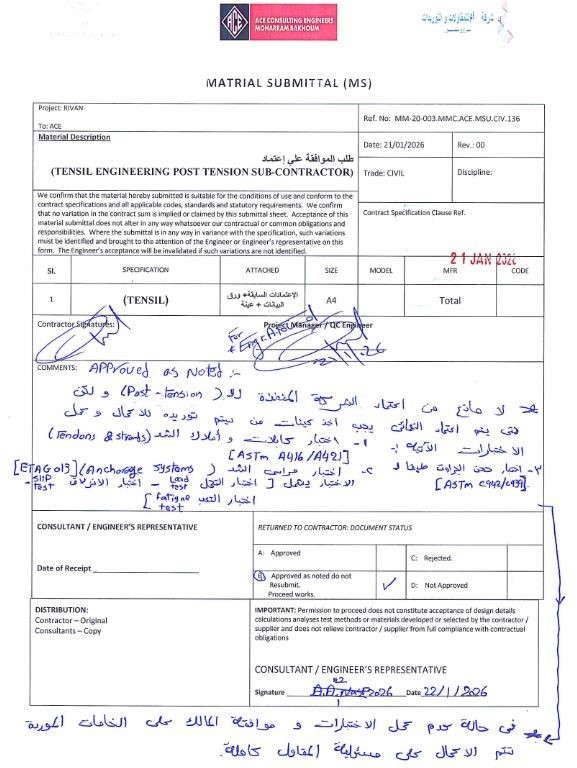 ACE
ACE CONSULTING ENGINEERS
MOHARRAM.BAKHOUM
MATRIAL SUBMITTAL (MS)
Project: RIVAN
To: ACE
Ref. No: MM-20-003.MMC.ACE.MSU.CIV.136
Material Description
Date: 21/01/2026
Rev.: 00
طلب الموافقة علي إعتماد
(TENSIL ENGINEERING POST TENSION SUB-CONTRACTOR)
Trade: CIVIL
Discipline:
We confirm that the material hereby submitted is suitable for the conditions of use and conform to the
contract specifications and all applicable codes, standards and statutory requirements. We confirm
that no variation in the contract sum is implied or claimed by this submittal sheet. Acceptance of this
material submitted does not alter in any way whatsoever our contractual or common obligations and
responsibilities. Where the submittal is in any way in variance with the specification, such variations
must be identified and brought to the attention of the Engineer or Engineer's representative on this
form. The Engineer's acceptance will be invalidated if such variations are not identified.
Contract Specification Clause Ref.
21 JAN 2026
SI.
SPECIFICATION
ATTACHED
SIZE
MODEL
MFR
CODE
1
(TENSIL)
الإعتمادات السابقة+ ورق
البيانات + عينة
A4
Total
Contractor Signatures:
Project Manager / QC Engineer
For
21/1/26
COMMENTS: APProved as Noted :-
* لا مانع من اعتماد الشركة المنفذة للـ (Post-tension) و لكن
حتى يتم اعتماد النهائى يجب اخذ عينات من سيتم توريده للاعمال و عمل
الاختبارات الآتية :- 1- اختبار كابلات و أسلاك الشد (Tendons & strands)
[ASTM A416/A421]
2- اختبار مراسى الشد (Anchorage Systems) [ETAG013]
الاختبار يشمل [اختبار التحمل Load test - اختبار الانزلاق SLIP test -
اختبار التعب fatigue test]
3- اختبار حقن الجراوت طبقا لـ
[ASTM C942/C939]
CONSULTANT / ENGINEER'S REPRESENTATIVE
Date of Receipt
RETURNED TO CONTRACTOR: DOCUMENT STATUS
A: Approved
C: Rejected.
B: Approved as noted do not
Resubmit.
Proceed works.
✓
D: Not Approved
DISTRIBUTION:
Contractor – Original
Consultants – Copy
IMPORTANT: Permission to proceed does not constitute acceptance of design details
calculations analyses test methods or materials developed or selected by the contractor /
supplier and does not relieve contractor / supplier from full compliance with contractual
obligations
CONSULTANT / ENGINEER'S REPRESENTATIVE
Signature
Date 22/1/2026
* فى حالة عدم عمل الاختبارات و موافقة المالك على الخامات الموردة
تتم الاعمال على مسئولية المقاول كاملة.